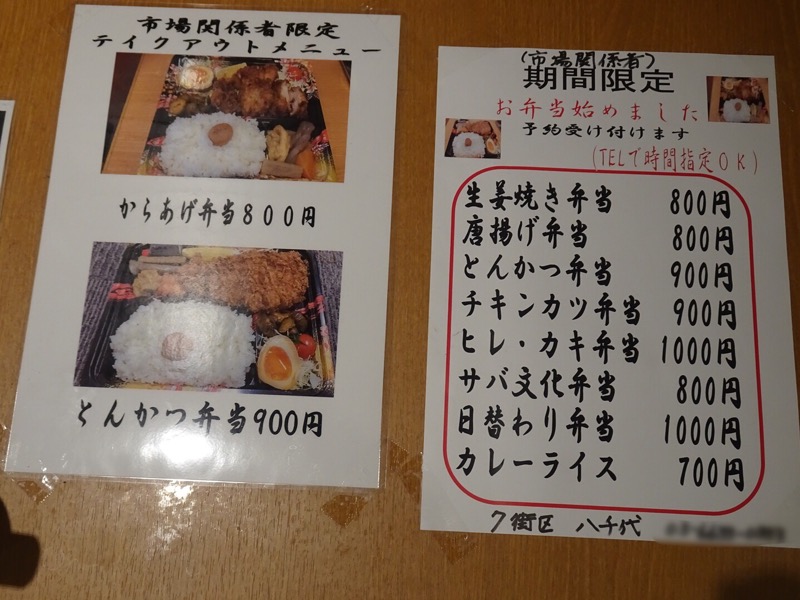 市場関係者限定
テイクアウトメニュー
からあげ弁当800円
とんかつ弁当900円
(市場関係者)
期間限定
お弁当始めました
予約受け付けます
(TELで時間指定OK)
生姜焼き弁当 800円
唐揚げ弁当 800円
とんかつ弁当 900円
チキンカツ弁当 900円
ヒレ・カキ弁当 1000円
サバ文化弁当 800円
日替わり弁当 1000円
カレーライス 700円
7街区 八千代